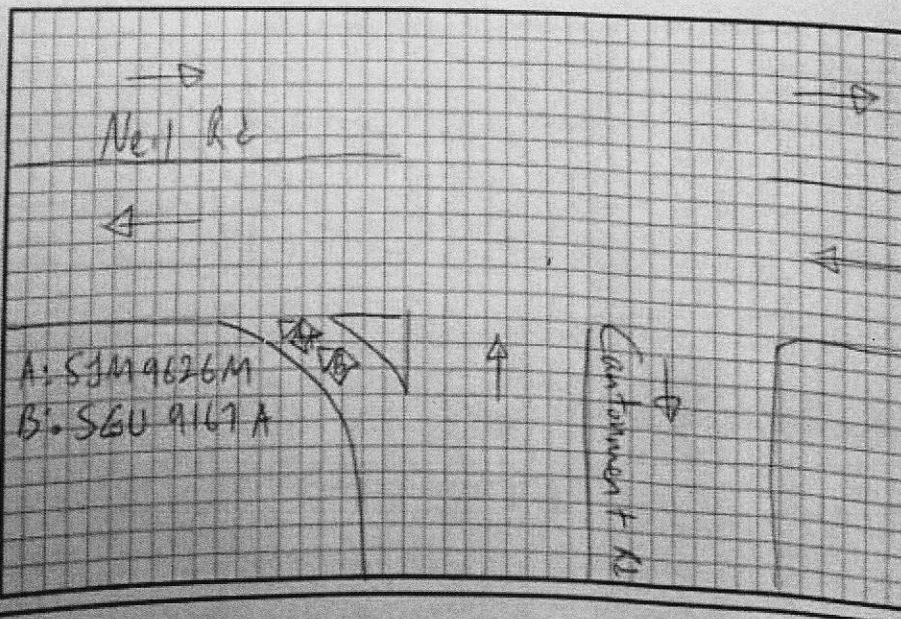 Neil Rd
A: SJM9626M
B: SGU 9167A
Cantonment Rd